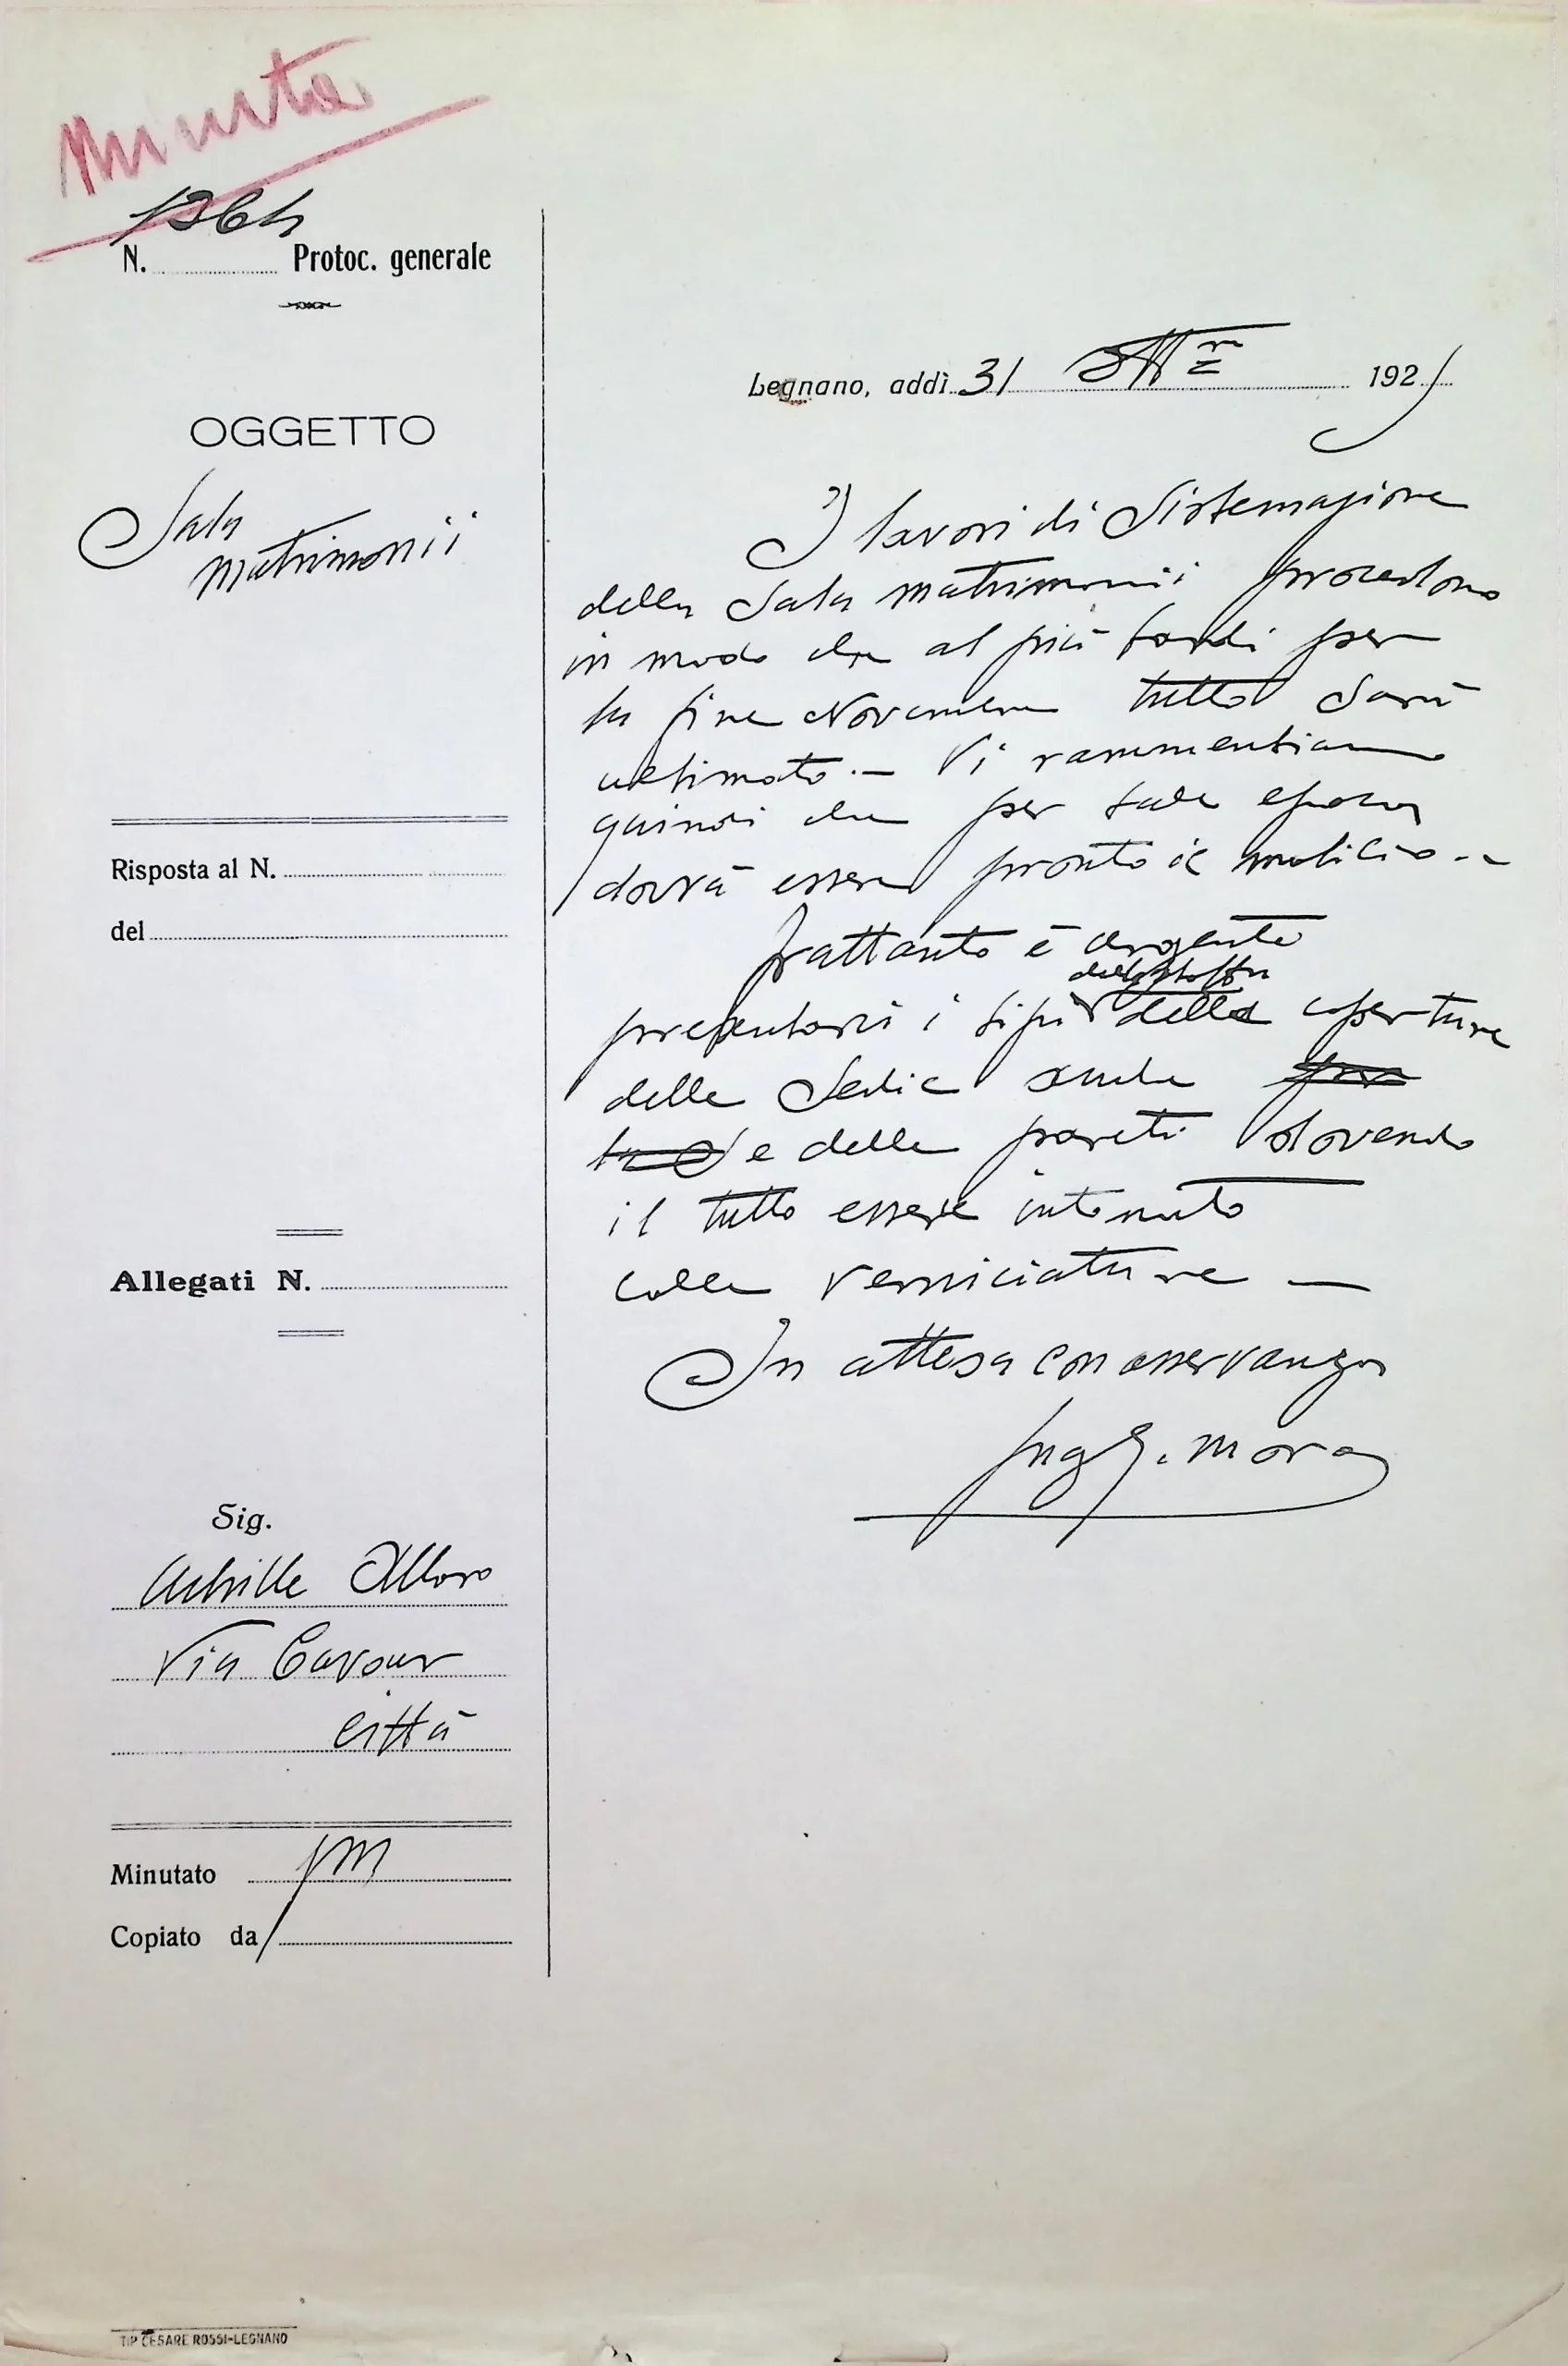 Minuta
N. 1364 Protoc. generale
OGGETTO
Sala
matrimonii
Risposta al N.
del
Allegati N.
Sig.
Achille
Via Cavour
Città
Minutato
Copiato da
Legnano, addì 31 Ott.re 192
I lavori di Sistemazione
della Sala matrimonii procedono
in modo che al più tardi per
la fine Novembre tutto sarà
ultimato. — Vi rammentiamo
quindi che per tale epoca
dovrà essere pronto il mobilio. —
Frattanto è urgente
della stoffa
presentarci i tipi della coperture
delle Sedie anche per
la S e delle pareti dovendo
il tutto essere intonato
colle verniciature —
In attesa con osservanza
Ing G. Mora
TIP CESARE ROSSI-LEGNANO